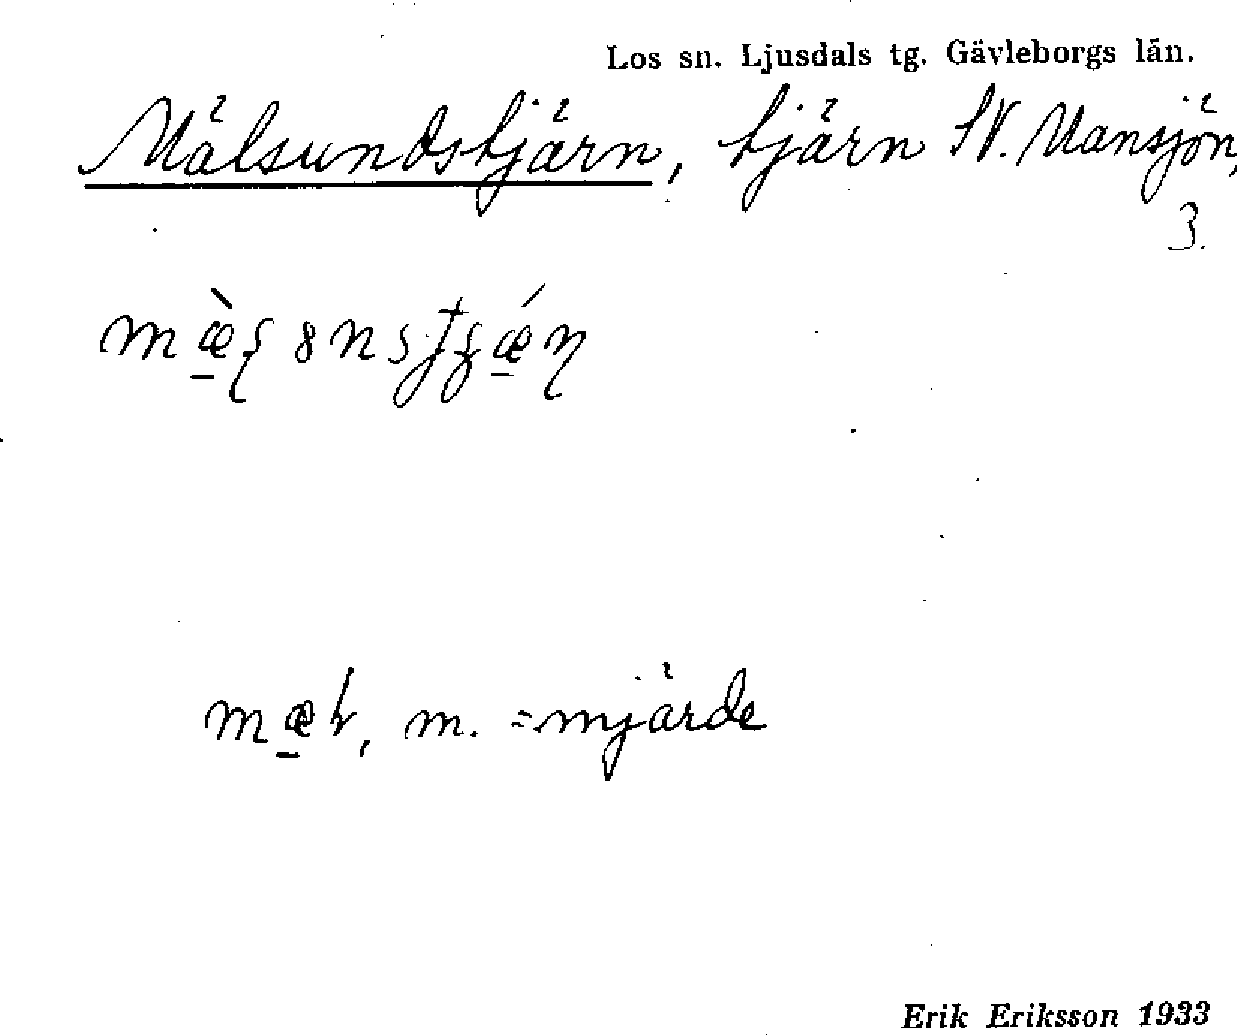 Los sn. Ljusdals tg. Gävleborgs län.
Mälsundstjärn, tjärn SV. Mansjön,
3.
m, m. = mjärde
Erik Eriksson 1933